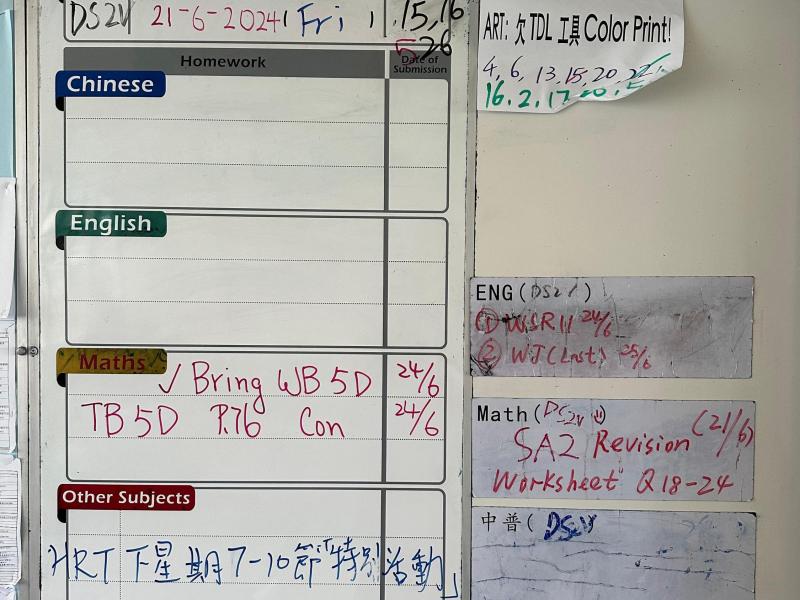 DS2V 21-6-2024 (Fri) 15, 16
26
Homework Date of Submission
Chinese
English
Maths
✓ Bring WB 5D 24/6
TB 5D P.76 Con 24/6
Other Subjects
HRT 下星期7-10節「特別活動」
ART: 欠 TDL 工具 Color Print!
4, 6, 13, 15, 20, 22
16, 2, 17
ENG (DS2V)
① WSR11 24/6
② WJ (Last) 25/6
Math (DS2V)
SA2 Revision (21/6)
Worksheet Q18-24
中普 (DS2V